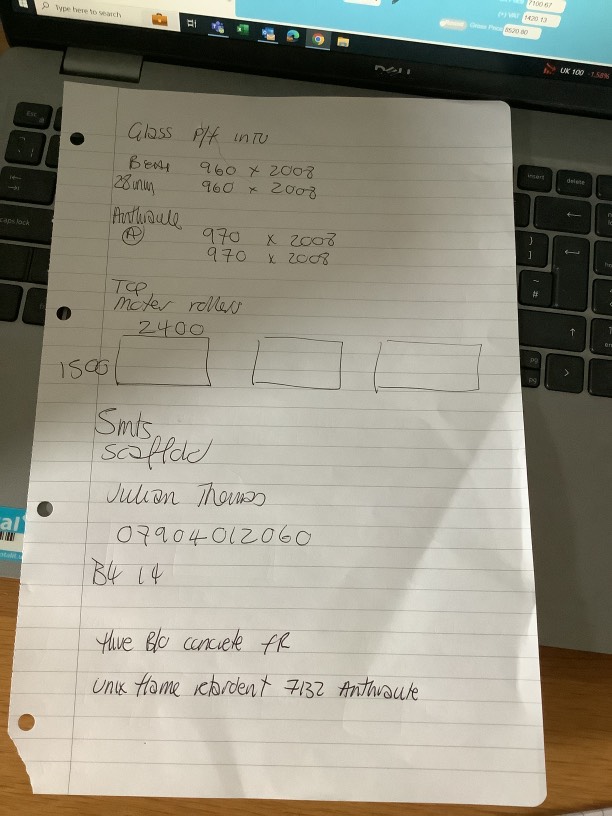 Type here to search
7100.67
1420.13
8520.80
UK 100 -1.58%
DELL
Esc
caps lock
insert
delete
Glass P/f INTU
960 x 2008
28mm 960 x 2008
Anthracite
A 970 x 2008
970 x 2008
Top
Moter rollers
2400
1500
Smts
scaffold
Julian Thomas
07904012060
B4 14
Hive B/O concrete FR
Unix flame retardent 7132 Anthracite